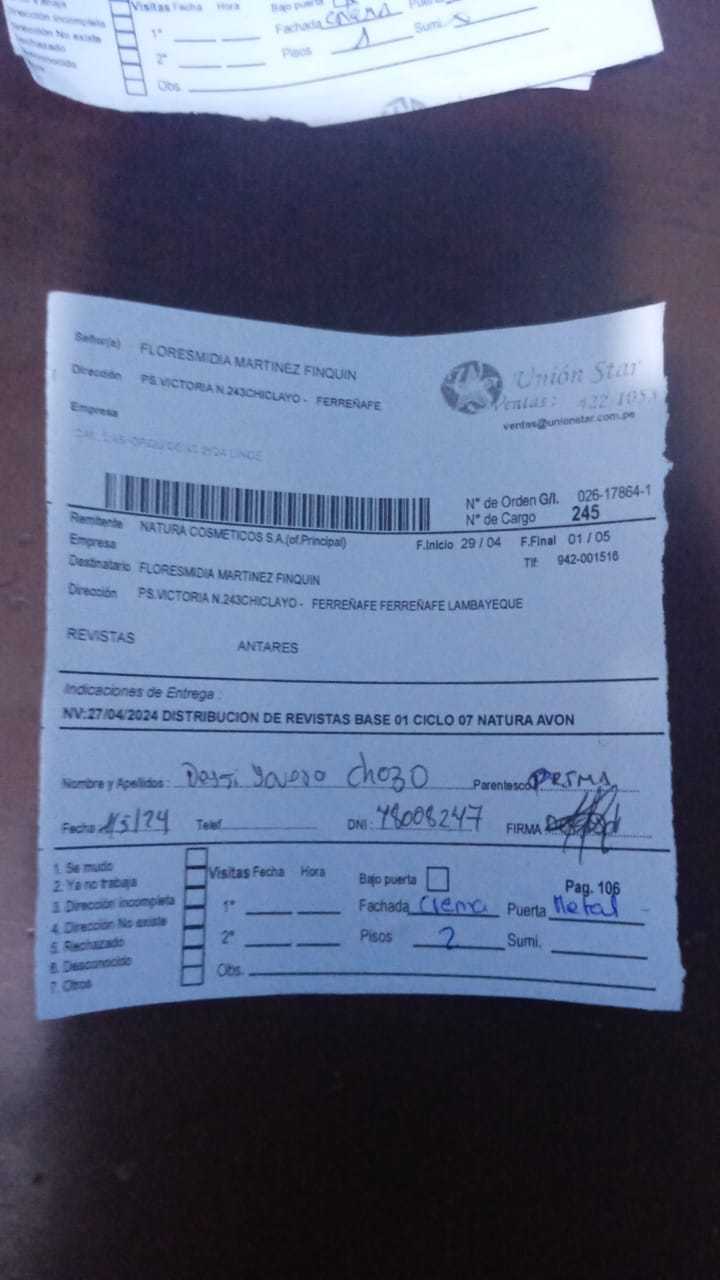 Dirección incompleta
Dirección No existe
Rechazado
Desconocido
Visitas Fecha Hora
1°
2°
Obs.
Bajo puerta
Fachada Crema
Pisos 1 Sumi.
Señor(a) FLORESMIDIA MARTINEZ FINQUIN
Dirección PS.VICTORIA N.243CHICLAYO - FERREÑAFE
Empresa
Unión Star
Ventas: 422-1053
ventas@unionstar.com.pe
N° de Orden G/I. 026-17864-1
N° de Cargo 245
Remitente NATURA COSMETICOS S.A.(of.Principal)
Empresa
F.Inicio 29 / 04 F.Final 01 / 05
Tlf: 942-001516
Destinatario FLORESMIDIA MARTINEZ FINQUIN
Dirección PS.VICTORIA N.243CHICLAYO - FERREÑAFE FERREÑAFE LAMBAYEQUE
REVISTAS ANTARES
Indicaciones de Entrega :
NV:27/04/2024 DISTRIBUCION DE REVISTAS BASE 01 CICLO 07 NATURA AVON
Nombre y Apellidos : Chozo Parentesco PRIMA
Fecha 1/5/24 Telef. DNI : 48008247 FIRMA
1. Se mudo
2. Ya no trabaja
3. Dirección incompleta
4. Dirección No existe
5. Rechazado
6. Desconocido
7. Otros
Visitas Fecha Hora
1°
2°
Obs.
Bajo puerta Pag. 106
Fachada Crema Puerta Metal
Pisos 2 Sumi.